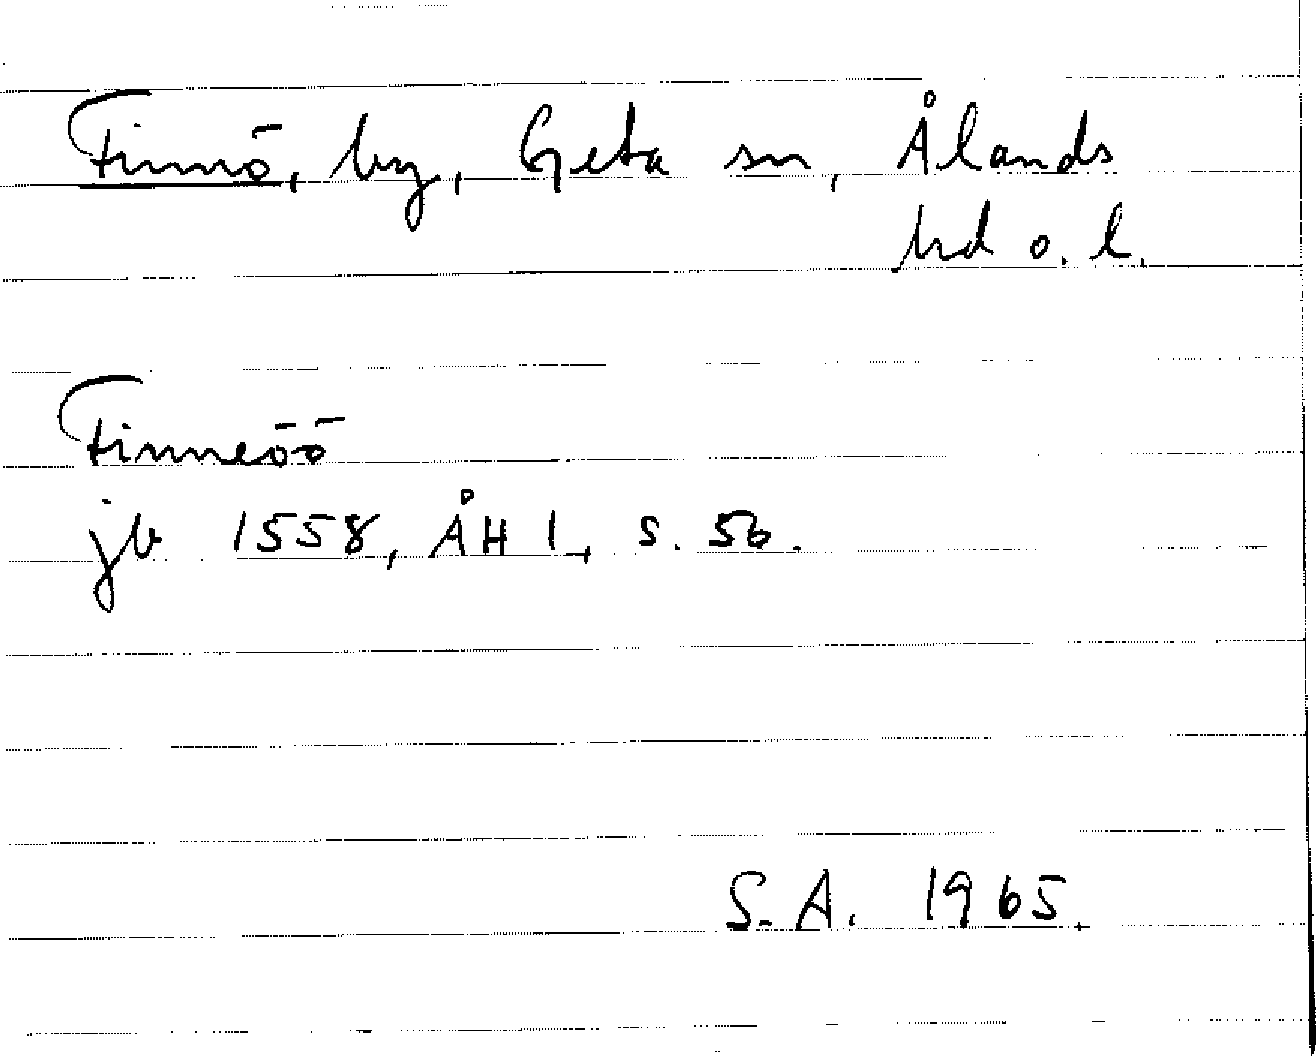 Finnö, by, Geta sn, Ålands
hd o. l.
Finneöö
jb 1558, ÅH 1, s. 56.
S.A. 1965.